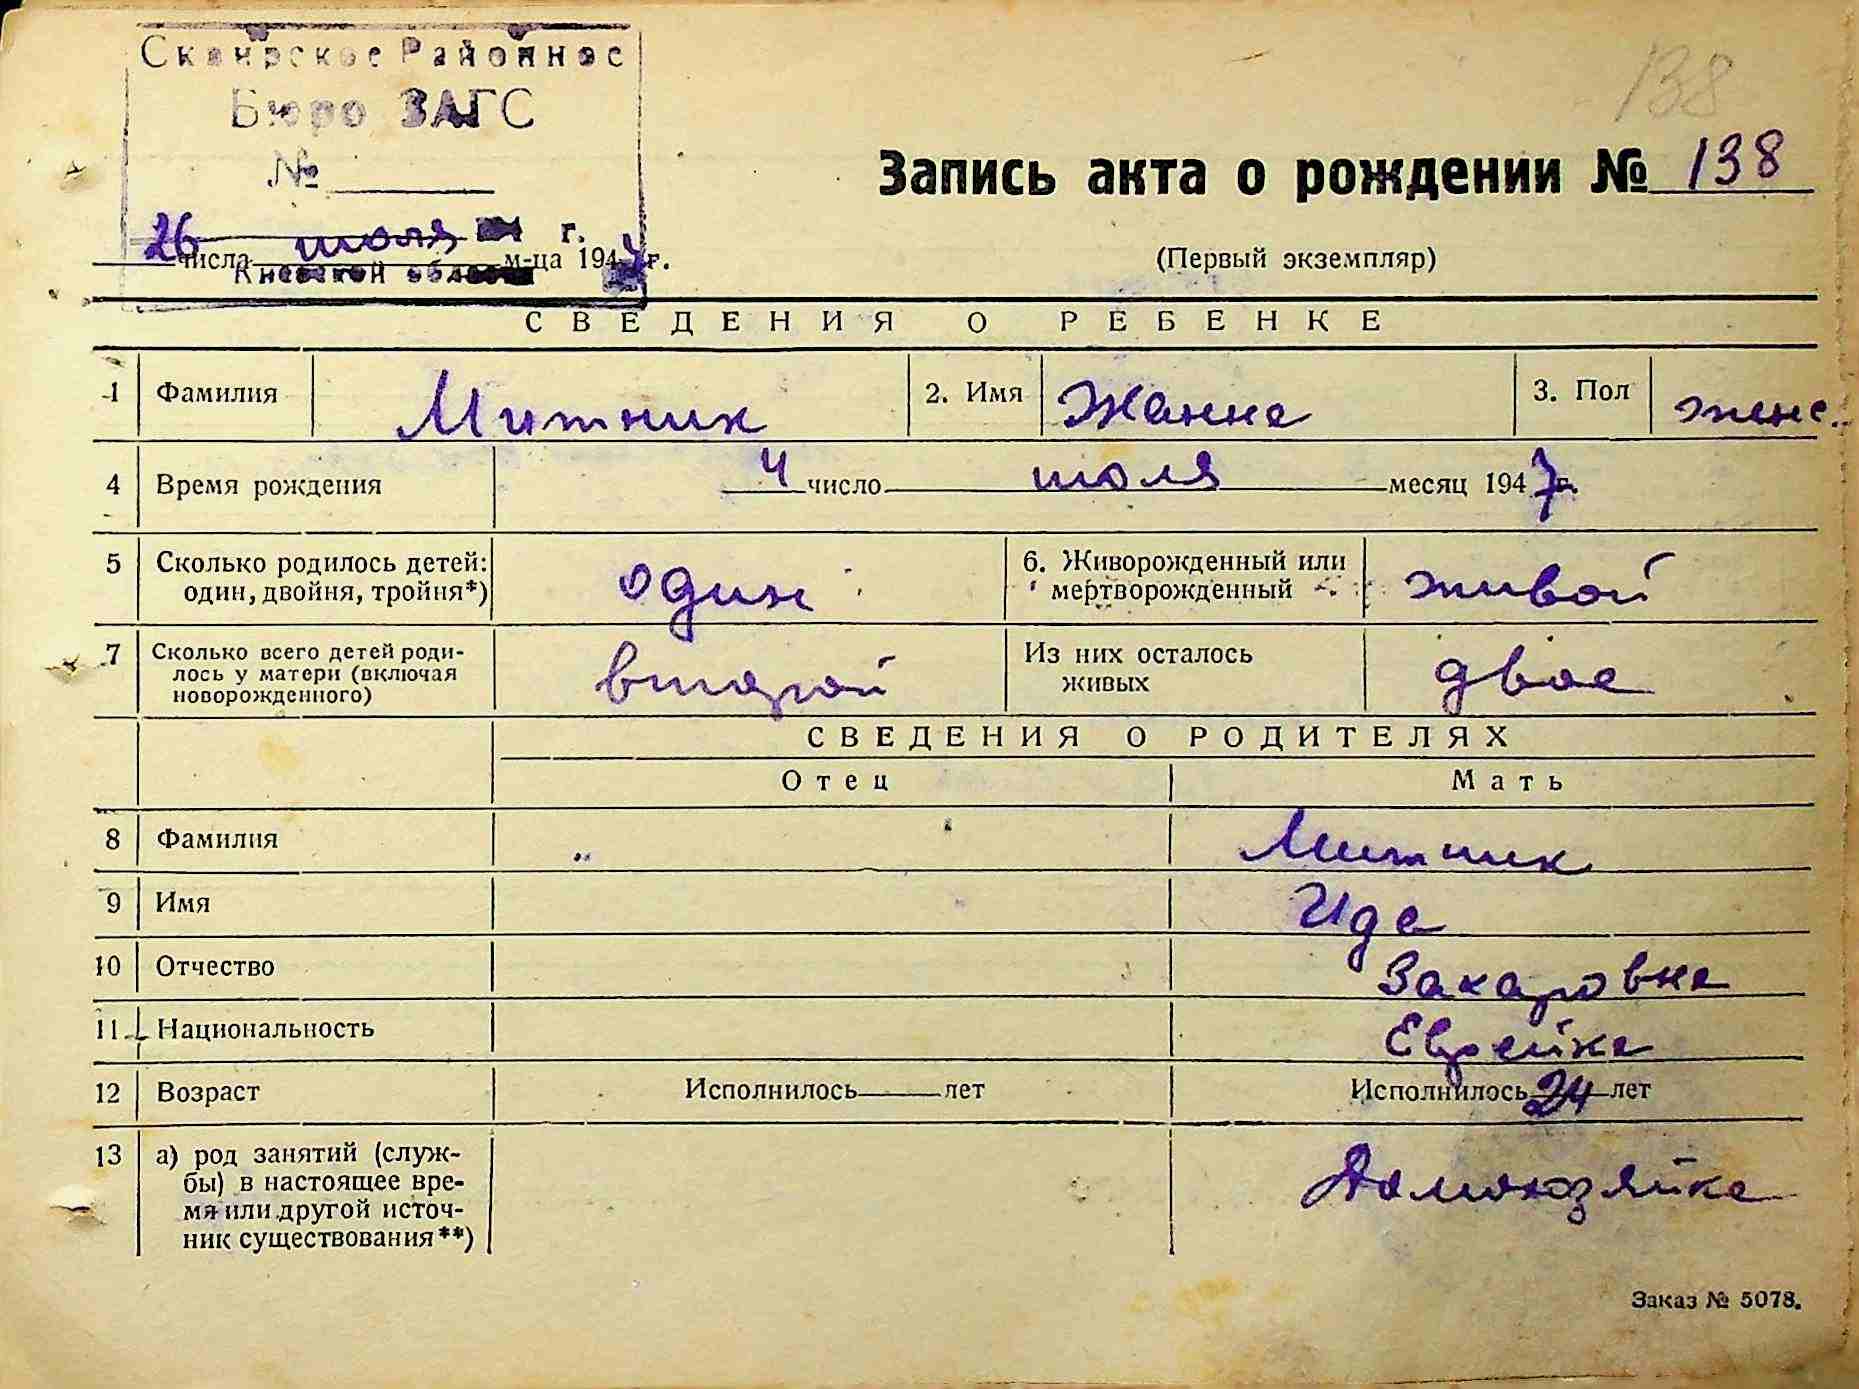 138
Сквирское Районное
Бюро ЗАГС
№
г.
Киевской области
Запись акта о рождении № 138
(Первый экземпляр)
26 числа июля м-ца 1947 г.
СВЕДЕНИЯ О РЕБЕНКЕ
1 Фамилия Митник 2. Имя Жанна 3. Пол женс.
4 Время рождения 4 число июля месяц 1947 г.
5 Сколько родилось детей: один, двойня, тройня*) один 6. Живорожденный или мертворожденный живой
7 Сколько всего детей родилось у матери (включая новорожденного) второй Из них осталось живых двое
СВЕДЕНИЯ О РОДИТЕЛЯХ
Отец Мать
8 Фамилия " Митник
9 Имя Ида
10 Отчество Захаровна
11 Национальность Еврейка
12 Возраст Исполнилось лет Исполнилось 24 лет
13 а) род занятий (служ-
бы) в настоящее вре-
мя или другой источ-
ник существования**) Домохозяйка
Заказ № 5078.